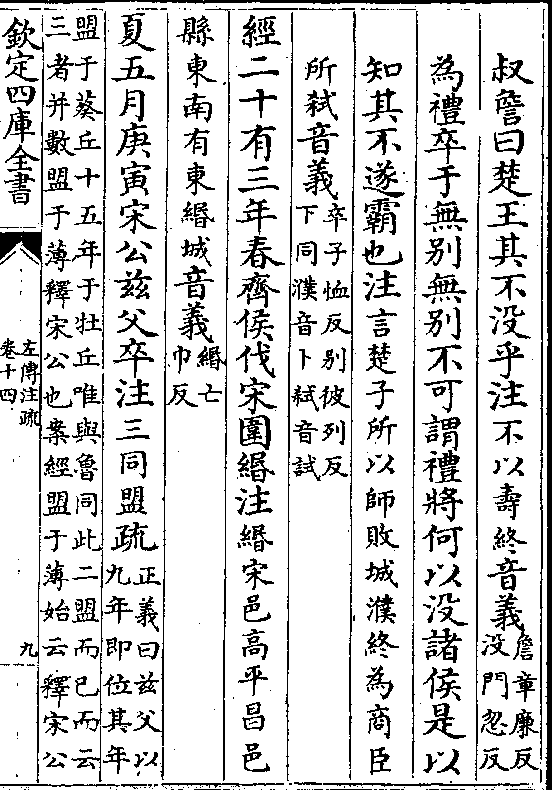 叔詹曰楚王其不没乎注不以壽終音義詹章廉反没門忽反
為禮卒于無别無别不可謂禮將何以没諸侯是以
知其不遂霸也注言楚子所以師敗城濮終為商臣
所弑音義卒子恤反别彼列反下同濮音卜弑音試
經二十有三年春齊侯伐宋圍緡注緡宋邑高平昌邑
縣東南有東緡城音義緡亡巾反
夏五月庚寅宋公兹父卒注三同盟疏正義曰兹父以九年即位其年
盟于葵丘十五年于牡丘唯與魯同此二盟而已而云
三者并數盟于薄釋宋公也案經盟于薄始云釋宋公
欽定四庫全書
左傳注疏
卷十四
九